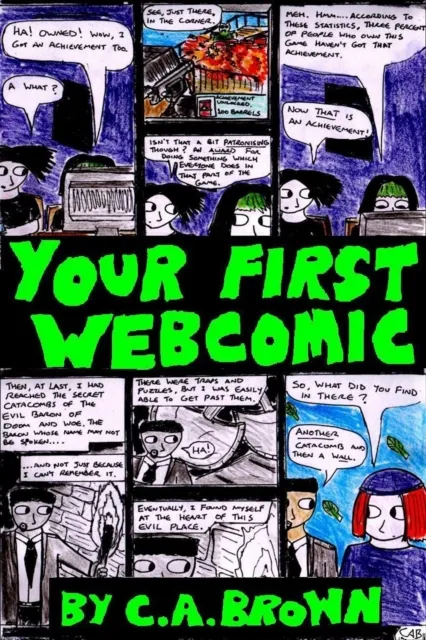 HA! OWNED! WOW, I
GOT AN ACHIEVEMENT TOO.
A WHAT?
SEE, JUST THERE,
IN THE CORNER.
ACHIEVEMENT
UNLOCKED:
100 BARRELS
ISN'T THAT A BIT PATRONISING
THOUGH? AN AWARD FOR
DOING SOMETHING WHICH
EVERYONE DOES IN
THAT PART OF THE
GAME.
MEH. HMM.... ACCORDING TO
THESE STATISTICS, THREE PERCENT
OF PEOPLE WHO OWN THIS
GAME HAVEN'T GOT THAT
ACHIEVEMENT.
NOW THAT IS
AN ACHIEVEMENT!
YOUR FIRST
WEBCOMIC
THEN, AT LAST, I HAD
REACHED THE SECRET
CATACOMBS OF THE
EVIL BARON OF
DOOM AND WOE, THE
BARON WHOSE NAME MAY NOT
BE SPOKEN....
...AND NOT JUST BECAUSE
I CAN'T REMEMBER IT.
THERE WERE TRAPS AND
PUZZLES, BUT I WAS EASILY
ABLE TO GET PAST THEM.
HA!
EVENTUALLY, I FOUND MYSELF
AT THE HEART OF THIS
EVIL PLACE.
SO, WHAT DID YOU FIND
IN THERE?
ANOTHER
CATACOMB AND
THEN A WALL.
BY C.A.BROWN
CAB